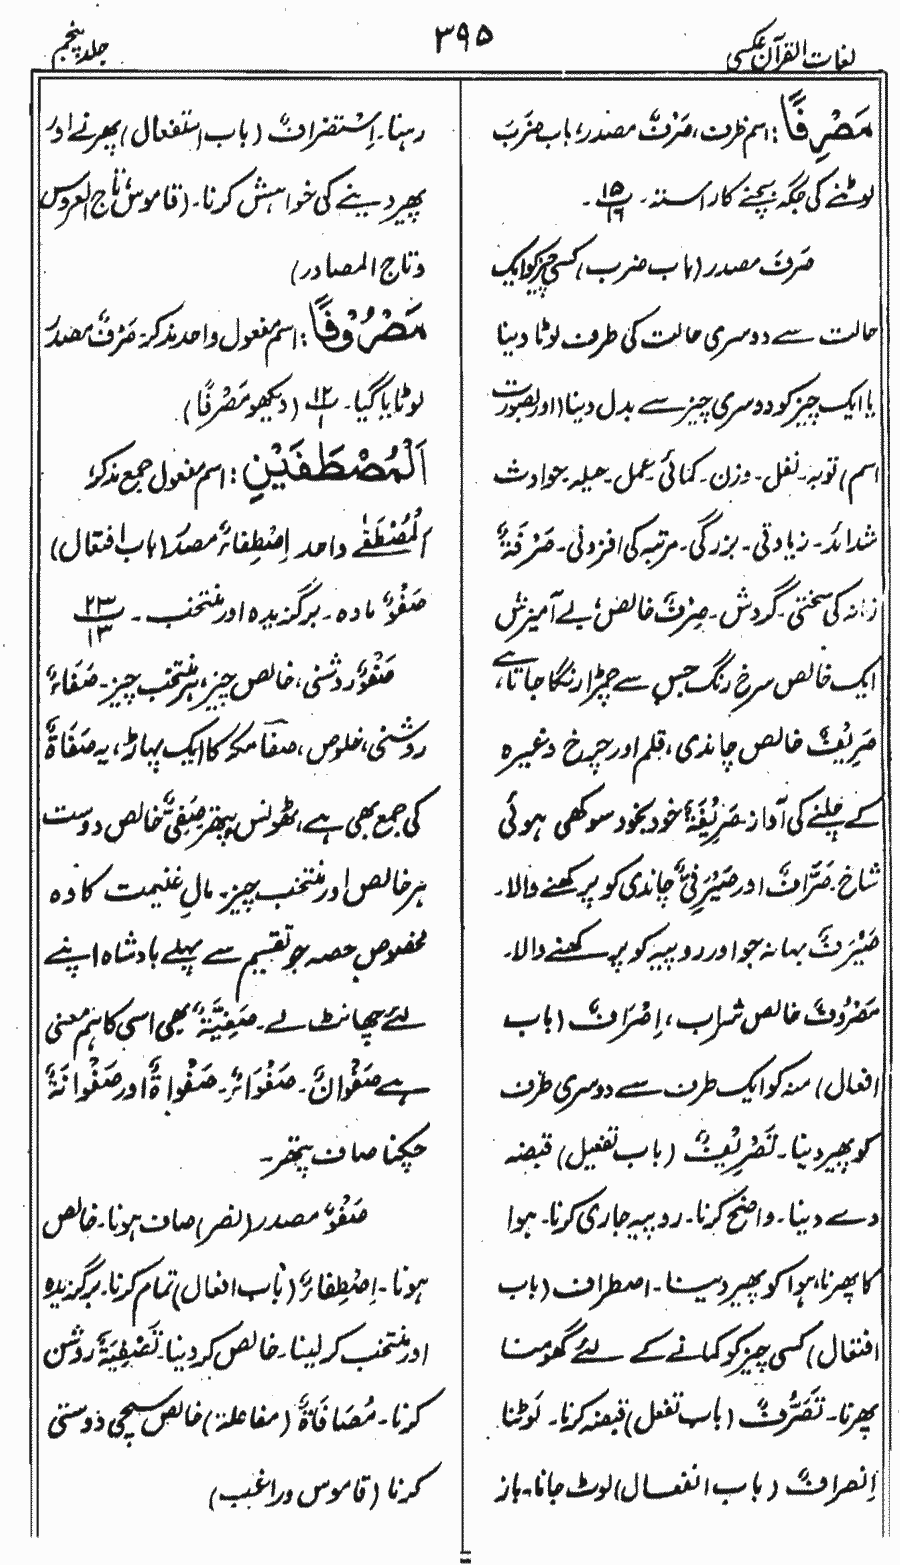 لغات القرآن عکسی
۳۹۵
جلد پنجم
مَصْرِفًا : اسم ظرف، صَرْفٌ مصدر، باب ضَرَبَ
لوٹنے کی جگہ بچنے کا راستہ۔ ۱۵/۱۶ ۔
صَرْفٌ مصدر (باب ضرب) کسی چیز کو ایک
حالت سے دوسری حالت کی طرف لوٹا دینا
یا ایک چیز کو دوسری چیز سے بدل دینا (اور بصورت
اسم) توبہ۔ نفل۔ وزن۔ کمائی۔ عمل۔ حیلہ۔ حوادث
شدائد۔ زیادتی۔ بزرگی۔ مرتبہ کی افزونی۔ صَرْفَةٌ
زمانہ کی سختی۔ گردش۔ صِرْفٌ خالص، بے آمیزش
ایک خالص سرخ رنگ جس سے چمڑا رنگا جاتا ہے،
صَرِیْفٌ خالص چاندی، قلم اور چرخ وغیرہ
کے چلنے کی آواز۔ صَرِیْفَةٌ خود بخود سوکھی ہوئی
شاخ۔ صَرَّافٌ اور صَیْرَفِیٌّ چاندی کو پرکھنے والا۔
صَیْرَفٌ بہانہ جو اور روپیہ کو پرکھنے والا۔
مَصْرُوْفٌ خالص شراب، اِصْرَافٌ (باب
افعال) منہ کو ایک طرف سے دوسری طرف
کو پھیر دینا۔ تَصْرِیْفٌ (باب تفعیل) قبضہ
دے دینا۔ واضح کرنا۔ روپیہ جاری کرنا۔ ہوا
کا پھرنا، ہوا کو پھیر دینا۔ اصطراف (باب
افتعال) کسی چیز کو کمانے کے لئے گھومنا
پھرنا۔ تَصَرُّفٌ (باب تفعل) قبضہ کرنا۔ لَوٹنا
اِنصرافٌ (باب انفعال) لوٹ جانا۔ باز
رہنا۔ اِسْتصرافٌ (باب استفعال) پھرنے اور
پھیر دینے کی خواہش کرنا۔ (قاموس، تاج العروس
و تاج المصادر)
مَصْرُوْفًا : اسم مفعول واحد مذکر۔ صَرْفٌ مصدر
لوٹایا گیا۔ ۱۲/۱ (دیکھو مَصْرِفًا)۔
اَلْمُصْطَفَیْنِ : اسم مفعول جمع مذکر،
اَلْمُصْطَفٰے واحد اِصْطِفَاءٌ مصدر (باب افتعال)
صَفْوٌ مادہ۔ برگزیدہ اور منتخب۔ ۲۳/۱۳
صَفْوٌ روشنی، خالص چیز، ہر منتخب چیز۔ صَفَاءٌ
روشنی، خلوص، صفَا مکہ کا ایک پہاڑ، یہ صَفَاةٌ
کی جمع بھی ہے، ٹھونس پتھر صَفِیٌّ خالص دوست
ہر خالص اور منتخب چیز۔ مالِ غنیمت کا وہ
مخصوص حصہ جو تقسیم سے پہلے بادشاہ اپنے
لئے چھانٹ لے۔ صَفِیَّةٌ بھی اسی کا ہم معنی
ہے صَفْوَانٌ۔ صَفْوَاءُ۔ صَفْوَاةٌ اور صَفْوَانَةٌ
چکنا صاف پتھر۔
صَفْوٌ مصدر (نصر) صاف ہونا۔ خالص
ہونا۔ اِصْطِفَاءٌ (باب افعال) تمام کرنا۔ برگزیدہ
اور منتخب کر لینا۔ خالص کر دینا۔ تَصْفِیَةٌ روشن
کرنا۔ مُصَافَاةٌ (مفاعلۃ) خالص سچی دوستی
کرنا (قاموس و راغب)